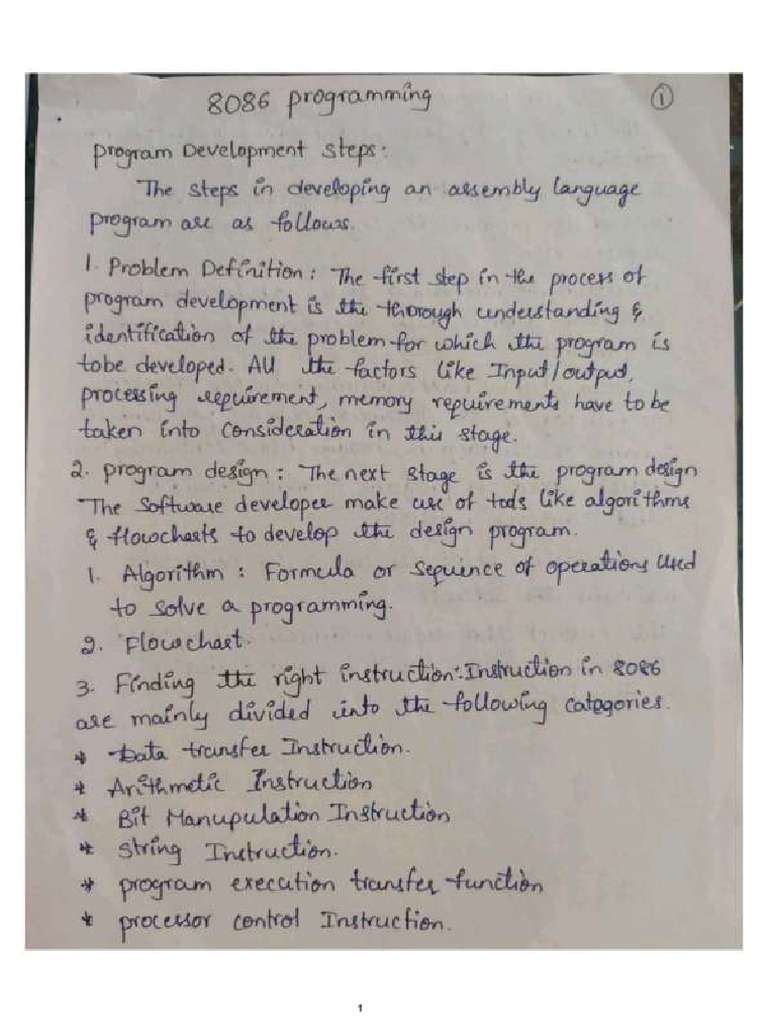 8086 programming ①
program Development steps:
The steps in developing an assembly language
program are as follows.
1. Problem Definition: The first step in the process of
program development is the thorough understanding &
identification of the problem for which the program is
tobe developed. All the factors like Input/output,
processing requirement, memory requirements have to be
taken into consideration in this stage.
2. program design: The next stage is the program design
The software developer make use of tools like algorithms
& flowcharts to develop the design program.
1. Algorithm: Formula or sequince of operations used
to solve a programming.
2. Flowchart.
3. Finding the right instruction: Instruction in 8086
are mainly divided into the following categories.
* Data transfer Instruction.
* Arithmetic Instruction
* Bit Manupulation Instruction
* String Instruction.
* program execution transfer function
* processor control Instruction.
1